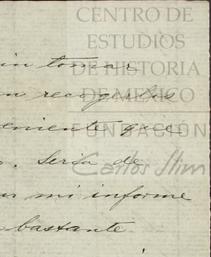 CENTRO DE
ESTUDIOS
DE HISTORIA
DE MÉXICO
FUNDACIÓN
Carlos Slim
in tomar
n recogerlos
eniente que
. Seria de
ar mi informe
bastante